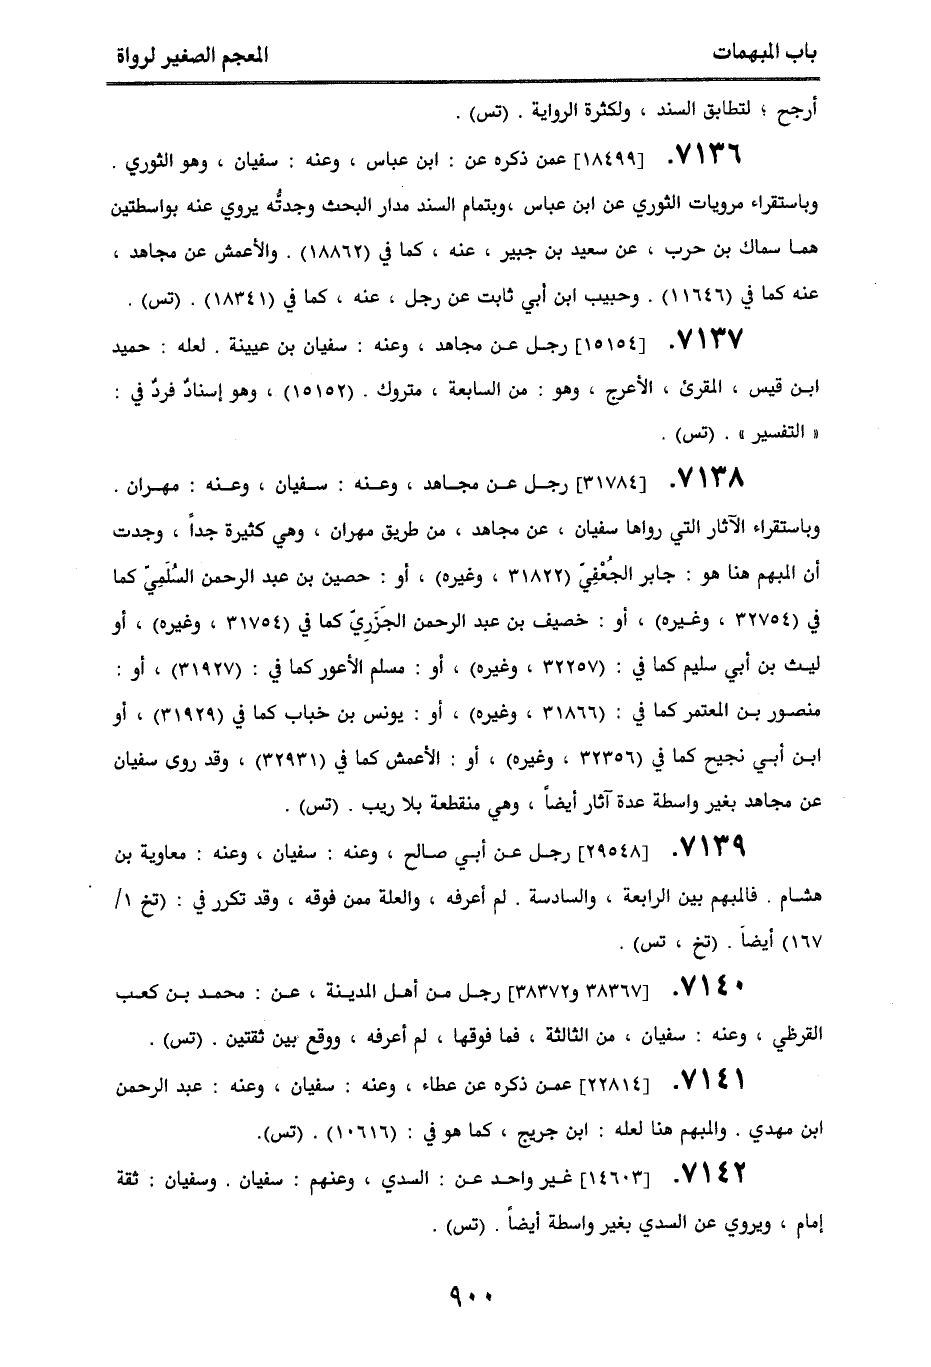 باب المبهمات
المعجم الصغير لرواة
أرجح ؛ لتطابق السند ، ولكثرة الرواية . (تس) .
٧١٣٦. [١٨٤٩٩] عمن ذكره عن : ابن عباس ، وعنه : سفيان ، وهو الثوري .
وباستقراء مرويات الثوري عن ابن عباس ،وبتمام السند مدار البحث وجدتُّه يروي عنه بواسطتين
هما سماك بن حرب ، عن سعيد بن جبير ، عنه ، كما في (١٨٨٦٢) . والأعمش عن مجاهد ،
عنه كما في (١١٦٤٦) . وحبيب ابن أبي ثابت عن رجل ، عنه ، كما في (١٨٣٤١) . (تس) .
٧١٣٧. [١٥١٥٤] رجل عن مجاهد ، وعنه : سفيان بن عيينة . لعله : حميد
ابن قيس ، المقرئ ، الأعرج ، وهو : من السابعة ، متروك . (١٥١٥٢) ، وهو إسنادٌ فردٌ في :
« التفسير » . (تس) .
٧١٣٨. [٣١٧٨٤] رجل عن مجاهد ، وعنه : سفيان ، وعنه : مهران .
وباستقراء الآثار التي رواها سفيان ، عن مجاهد ، من طريق مهران ، وهي كثيرة جداً ، وجدت
أن المبهم هنا هو : جابر الجُعْفِيّ (٣١٨٢٢ ، وغيره) ، أو : حصين بن عبد الرحمن السُّلَمِيّ كما
في (٣٢٧٥٤ ، وغيره) ، أو : خصيف بن عبد الرحمن الجَزَرِيّ كما في (٣١٧٥٤ ، وغيره) ، أو
ليث بن أبي سليم كما في : (٣٢٢٥٧ ، وغيره) ، أو : مسلم الأعور كما في : (٣١٩٢٧) ، أو :
منصور بن المعتمر كما في : (٣١٨٦٦ ، وغيره) ، أو : يونس بن خباب كما في (٣١٩٢٩) ، أو
ابن أبي نجيح كما في (٣٢٣٥٦ ، وغيره) ، أو : الأعمش كما في (٣٢٩٣١) ، وقد روى سفيان
عن مجاهد بغير واسطة عدة آثار أيضاً ، وهي منقطعة بلا ريب . (تس) .
٧١٣٩. [٢٩٥٤٨] رجل عن أبي صالح ، وعنه : سفيان ، وعنه : معاوية بن
هشام . فالمبهم بين الرابعة ، والسادسة . لم أعرفه ، والعلة ممن فوقه ، وقد تكرر في : (تخ ١/
١٦٧) أيضاً . (تخ ، تس) .
٧١٤٠. [٣٨٣٦٧ و٣٨٣٧٢] رجل من أهل المدينة ، عن : محمد بن كعب
القرظي ، وعنه : سفيان ، من الثالثة ، فما فوقها ، لم أعرفه ، ووقع بين ثقتين . (تس) .
٧١٤١. [٢٢٨١٤] عمن ذكره عن عطاء ، وعنه : سفيان ، وعنه : عبد الرحمن
ابن مهدي . والمبهم هنا لعله : ابن جريج ، كما هو في : (١٠٦١٦) . (تس).
٧١٤٢. [١٤٦٠٣] غير واحد عن : السدي ، وعنهم : سفيان . وسفيان : ثقة
إمام ، ويروي عن السدي بغير واسطة أيضاً . (تس) .
٩٠٠